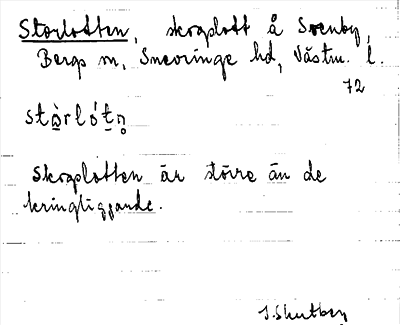 Storlotten, skogslott å Svenby,
Bergs sn, Snevringe hd, Västm. l.
72
stòrlótn̥
Skogslotten är större än de
kringliggande.